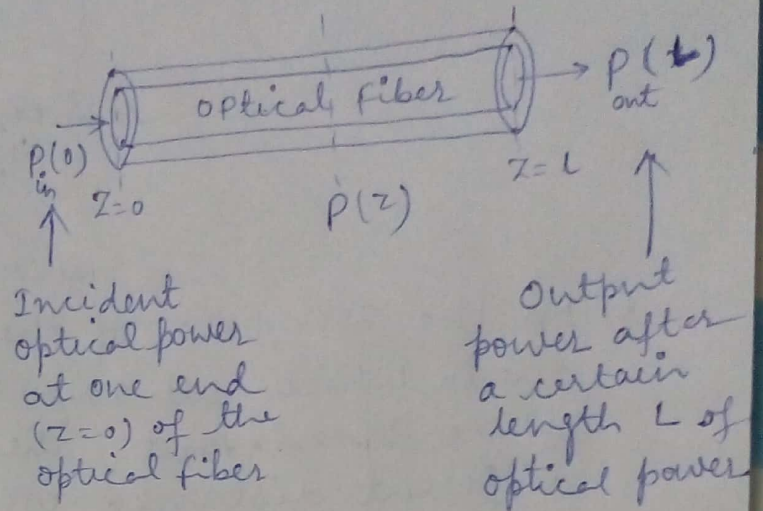 optical fiber
P(L)
out
P(0)
in
Z=0
P(Z)
Z=L
Incident
optical power
at one end
(Z=0) of the
optical fiber
Output
power after
a certain
length L of
optical power